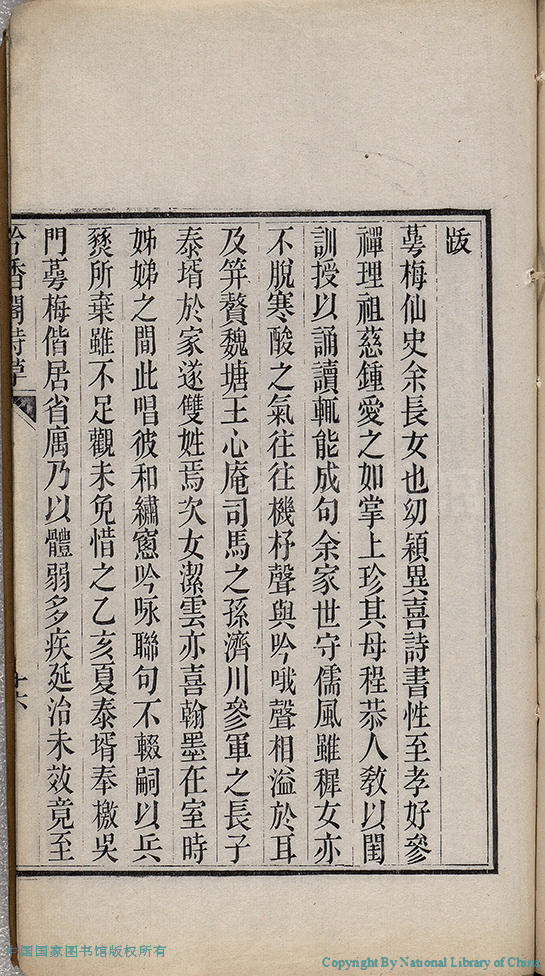 跋
蕚梅仙史余長女也幼穎異喜詩書性至孝好參
禪理祖慈鍾愛之如掌上珍其母程恭人教以閨
訓授以誦讀輒能成句余家世守儒風雖穉女亦
不脫寒酸之氣往往機杼聲與吟哦聲相溢於耳
及笄贅魏塘王心庵司馬之孫濟川參軍之長子
泰壻於家遂雙姓焉次女潔雲亦喜翰墨在室時
姊娣之間此唱彼和繡窻吟咏聯句不輟嗣以兵
燹所棄雖不足觀未免惜之乙亥夏泰壻奉檄吳
門蕚梅偕居省廡乃以體弱多疾延治未效竟至
香閣詩草
十六
中国国家图书馆版权所有
Copyright By National Library of China